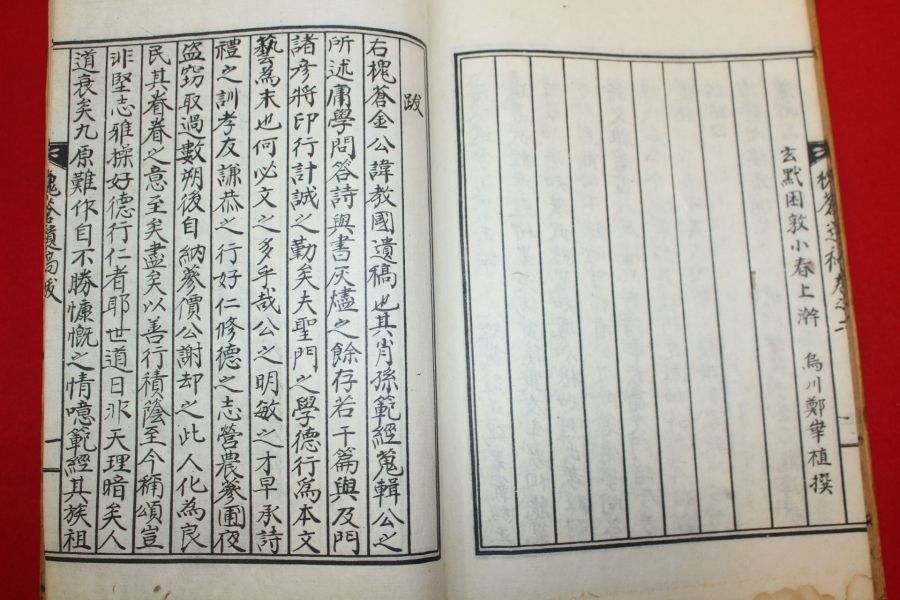 玄默困敦小春上澣　烏川鄭𡸁植撰
跋
右槐蒼金公諱教國遺稿也其肖孫範經蒐輯公之
所述庸學問答詩與書灰燼之餘存若干篇與及門
諸彦將印行計誠之勤矣夫聖門之學德行爲本文
藝為末也何必文之多乎哉公之明敏之才早承詩
禮之訓孝友謙恭之行好仁修德之志營農蔘圃夜
盜竊取過數朔後自納蔘價公謝却之此人化為良
民其眷眷之意至矣盡矣以善行積蔭至今稱頌豈
非堅志雅操好德行仁者耶世道日非天理暗矣人
道衰矣九原難作自不勝慷慨之情噫範經其族祖